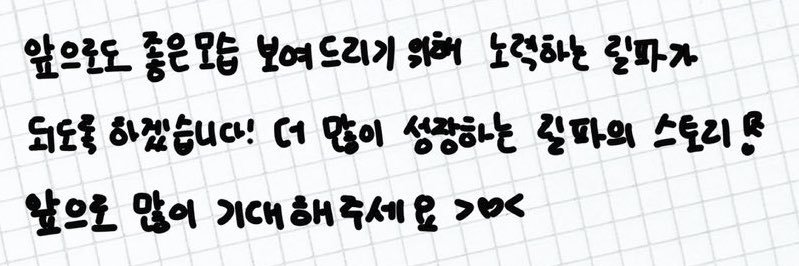 앞으로도 좋은모습 보여드리기 위해 노력하는 릴파가
되도록 하겠습니다! 더 많이 성장하는 릴파의 스토리!
앞으로 많이 기대해주세요 >♡<